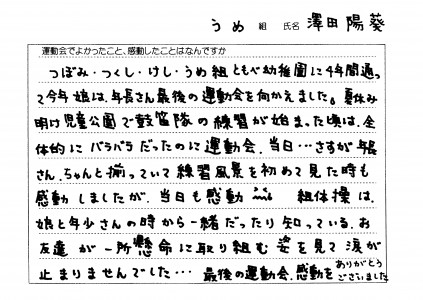 うめ 組 氏名 澤田 陽葵
運動会でよかったこと、感動したことはなんですか
つぼみ・つくし・けし・うめ 組 ともべ幼稚園に4年間通っ
て今年 娘は、年長さん最後の運動会を向かえました。夏休み
明け児童公園で鼓笛隊の練習が始まった頃は、全
体的に バラバラ だったのに運動会、当日…さすが年長
さん、ちゃんと揃っていて練習風景を初めて見た時も
感動 しましたが、当日も感動 組体操は、
娘と年少さんの時から一緒だったり知っている、お
友達 が一所懸命に取り組む姿を見て涙が
止まりませんでした… 最後の運動会、感動を ありがとう
ございました